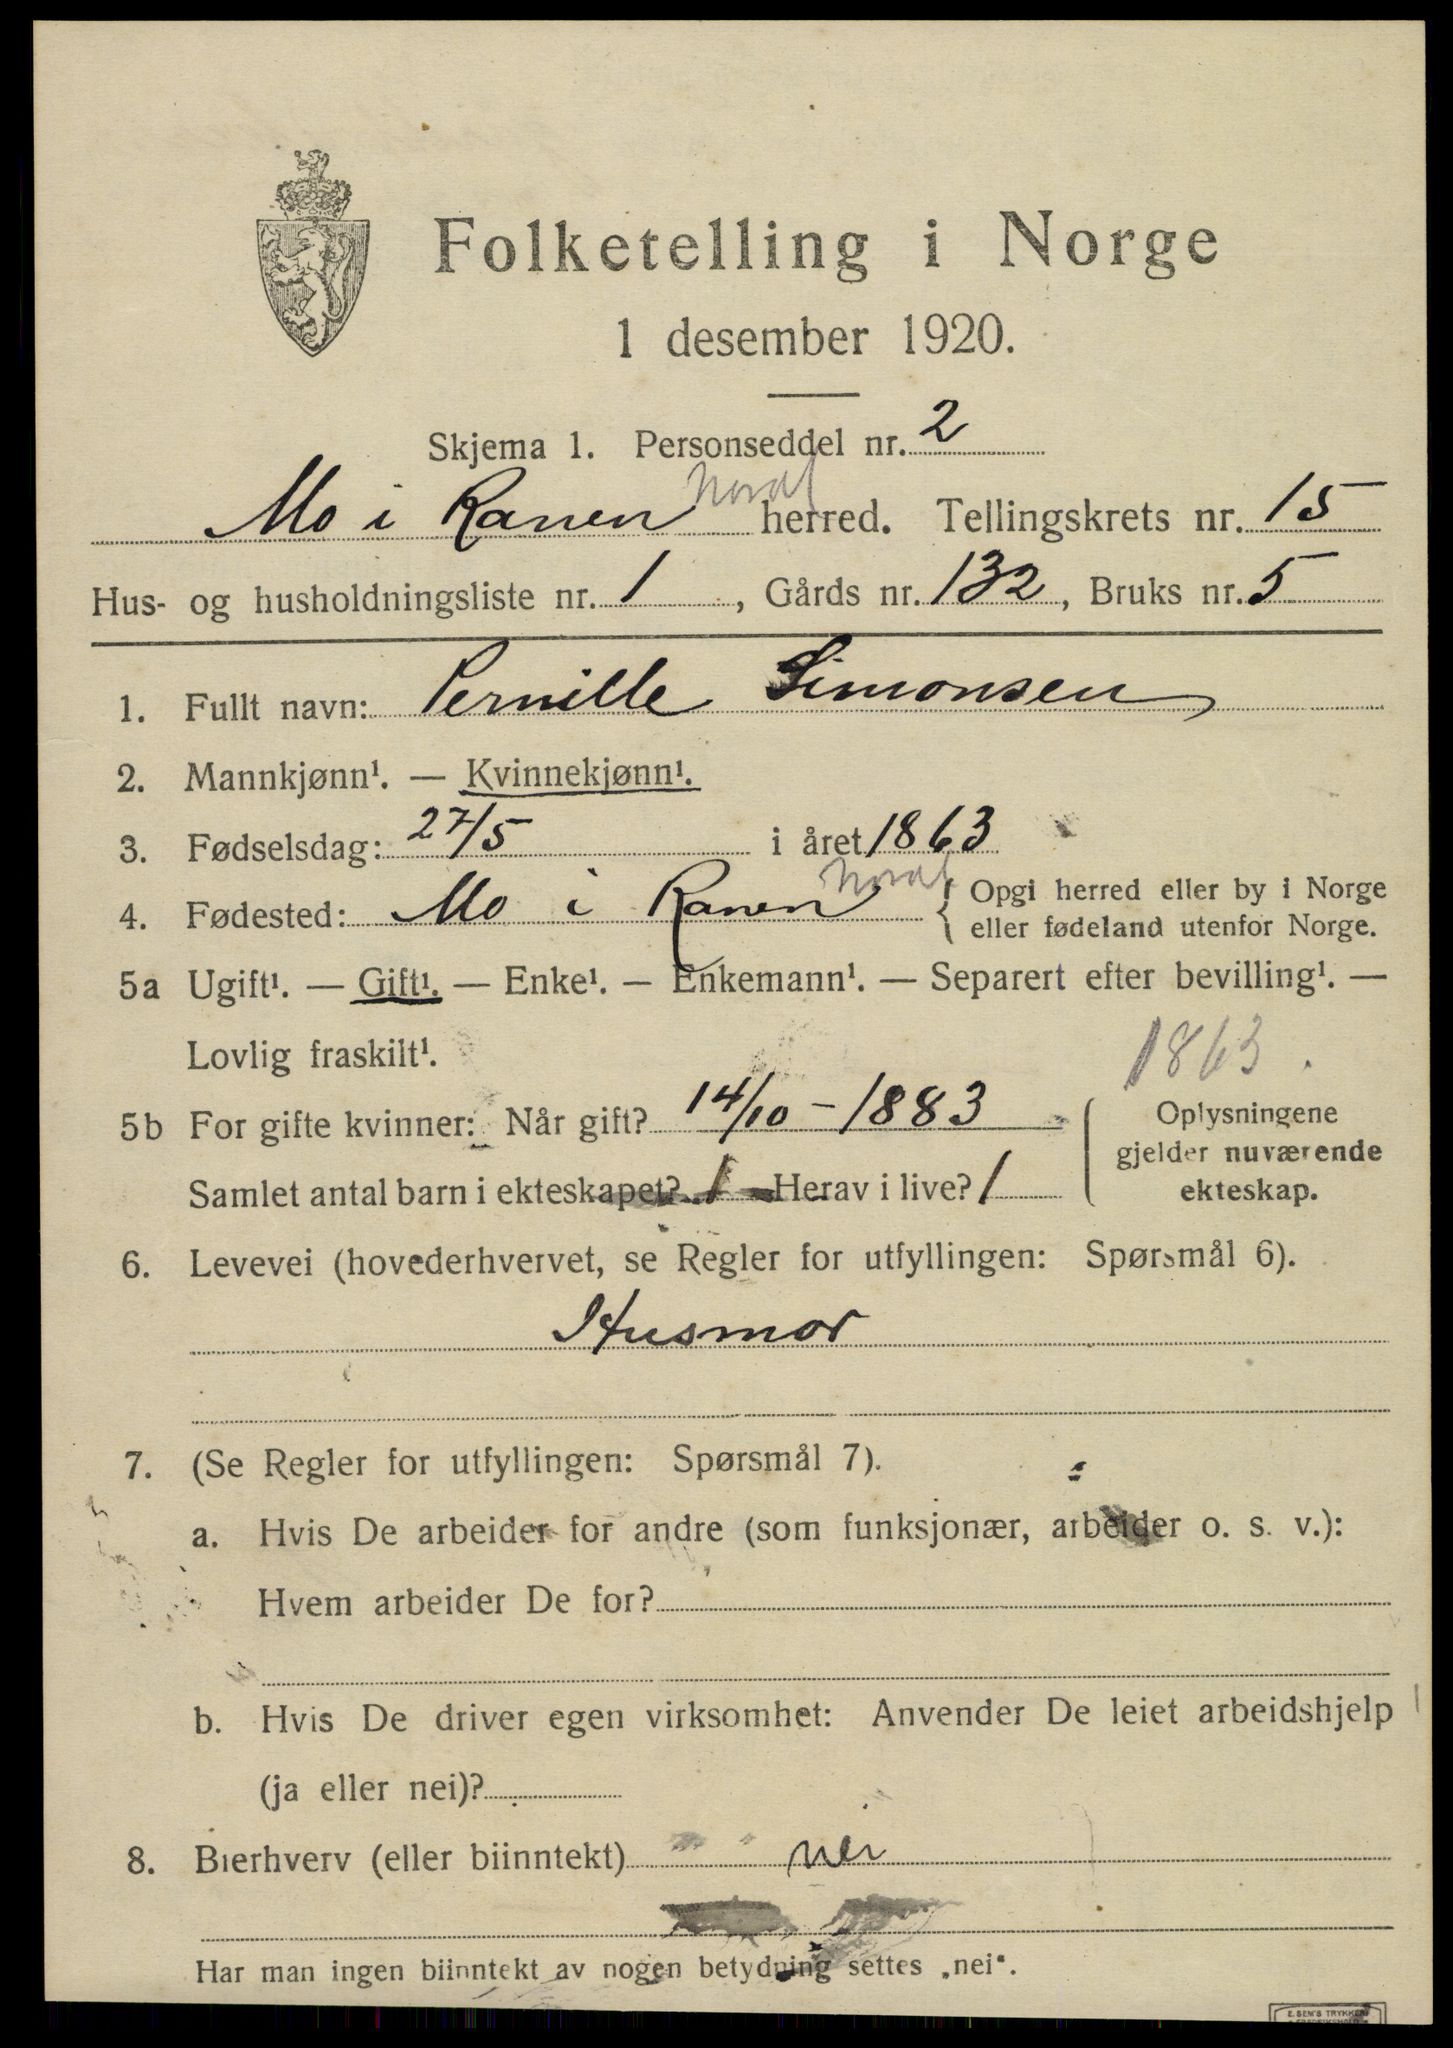 Folketelling i Norge
1 desember 1920.
Skjema 1. Personseddel nr. 2
Nordl
Mo i Ranen herred. Tellingskrets nr. 15
Hus- og husholdningsliste nr. 1, Gårds nr. 132, Bruks nr. 5
1. Fullt navn: Pernille Simonsen
2. Mannkjønn¹. — Kvinnekjønn¹.
3. Fødselsdag: 27/5 i året 1863
Nordl
4. Fødested: Mo i Ranen { Opgi herred eller by i Norge
eller fødeland utenfor Norge.
5a Ugift¹. — Gift¹. — Enke¹. — Enkemann¹. — Separert efter bevilling¹. —
Lovlig fraskilt¹.
1863.
5b For gifte kvinner: Når gift? 14/10 - 1883
Samlet antal barn i ekteskapet? 1 Herav i live? 1
{ Oplysningene
gjelder nuværende
ekteskap.
6. Levevei (hovederhvervet, se Regler for utfyllingen: Spørsmål 6).
Husmor
7. (Se Regler for utfyllingen: Spørsmål 7).
a. Hvis De arbeider for andre (som funksjonær, arbeider o. s. v.):
Hvem arbeider De for?
b. Hvis De driver egen virksomhet: Anvender De leiet arbeidshjelp
(ja eller nei)?
8. Bierhverv (eller biinntekt) nei
Har man ingen biinntekt av nogen betydning settes „nei".
E. SEM'S TRYKKERI